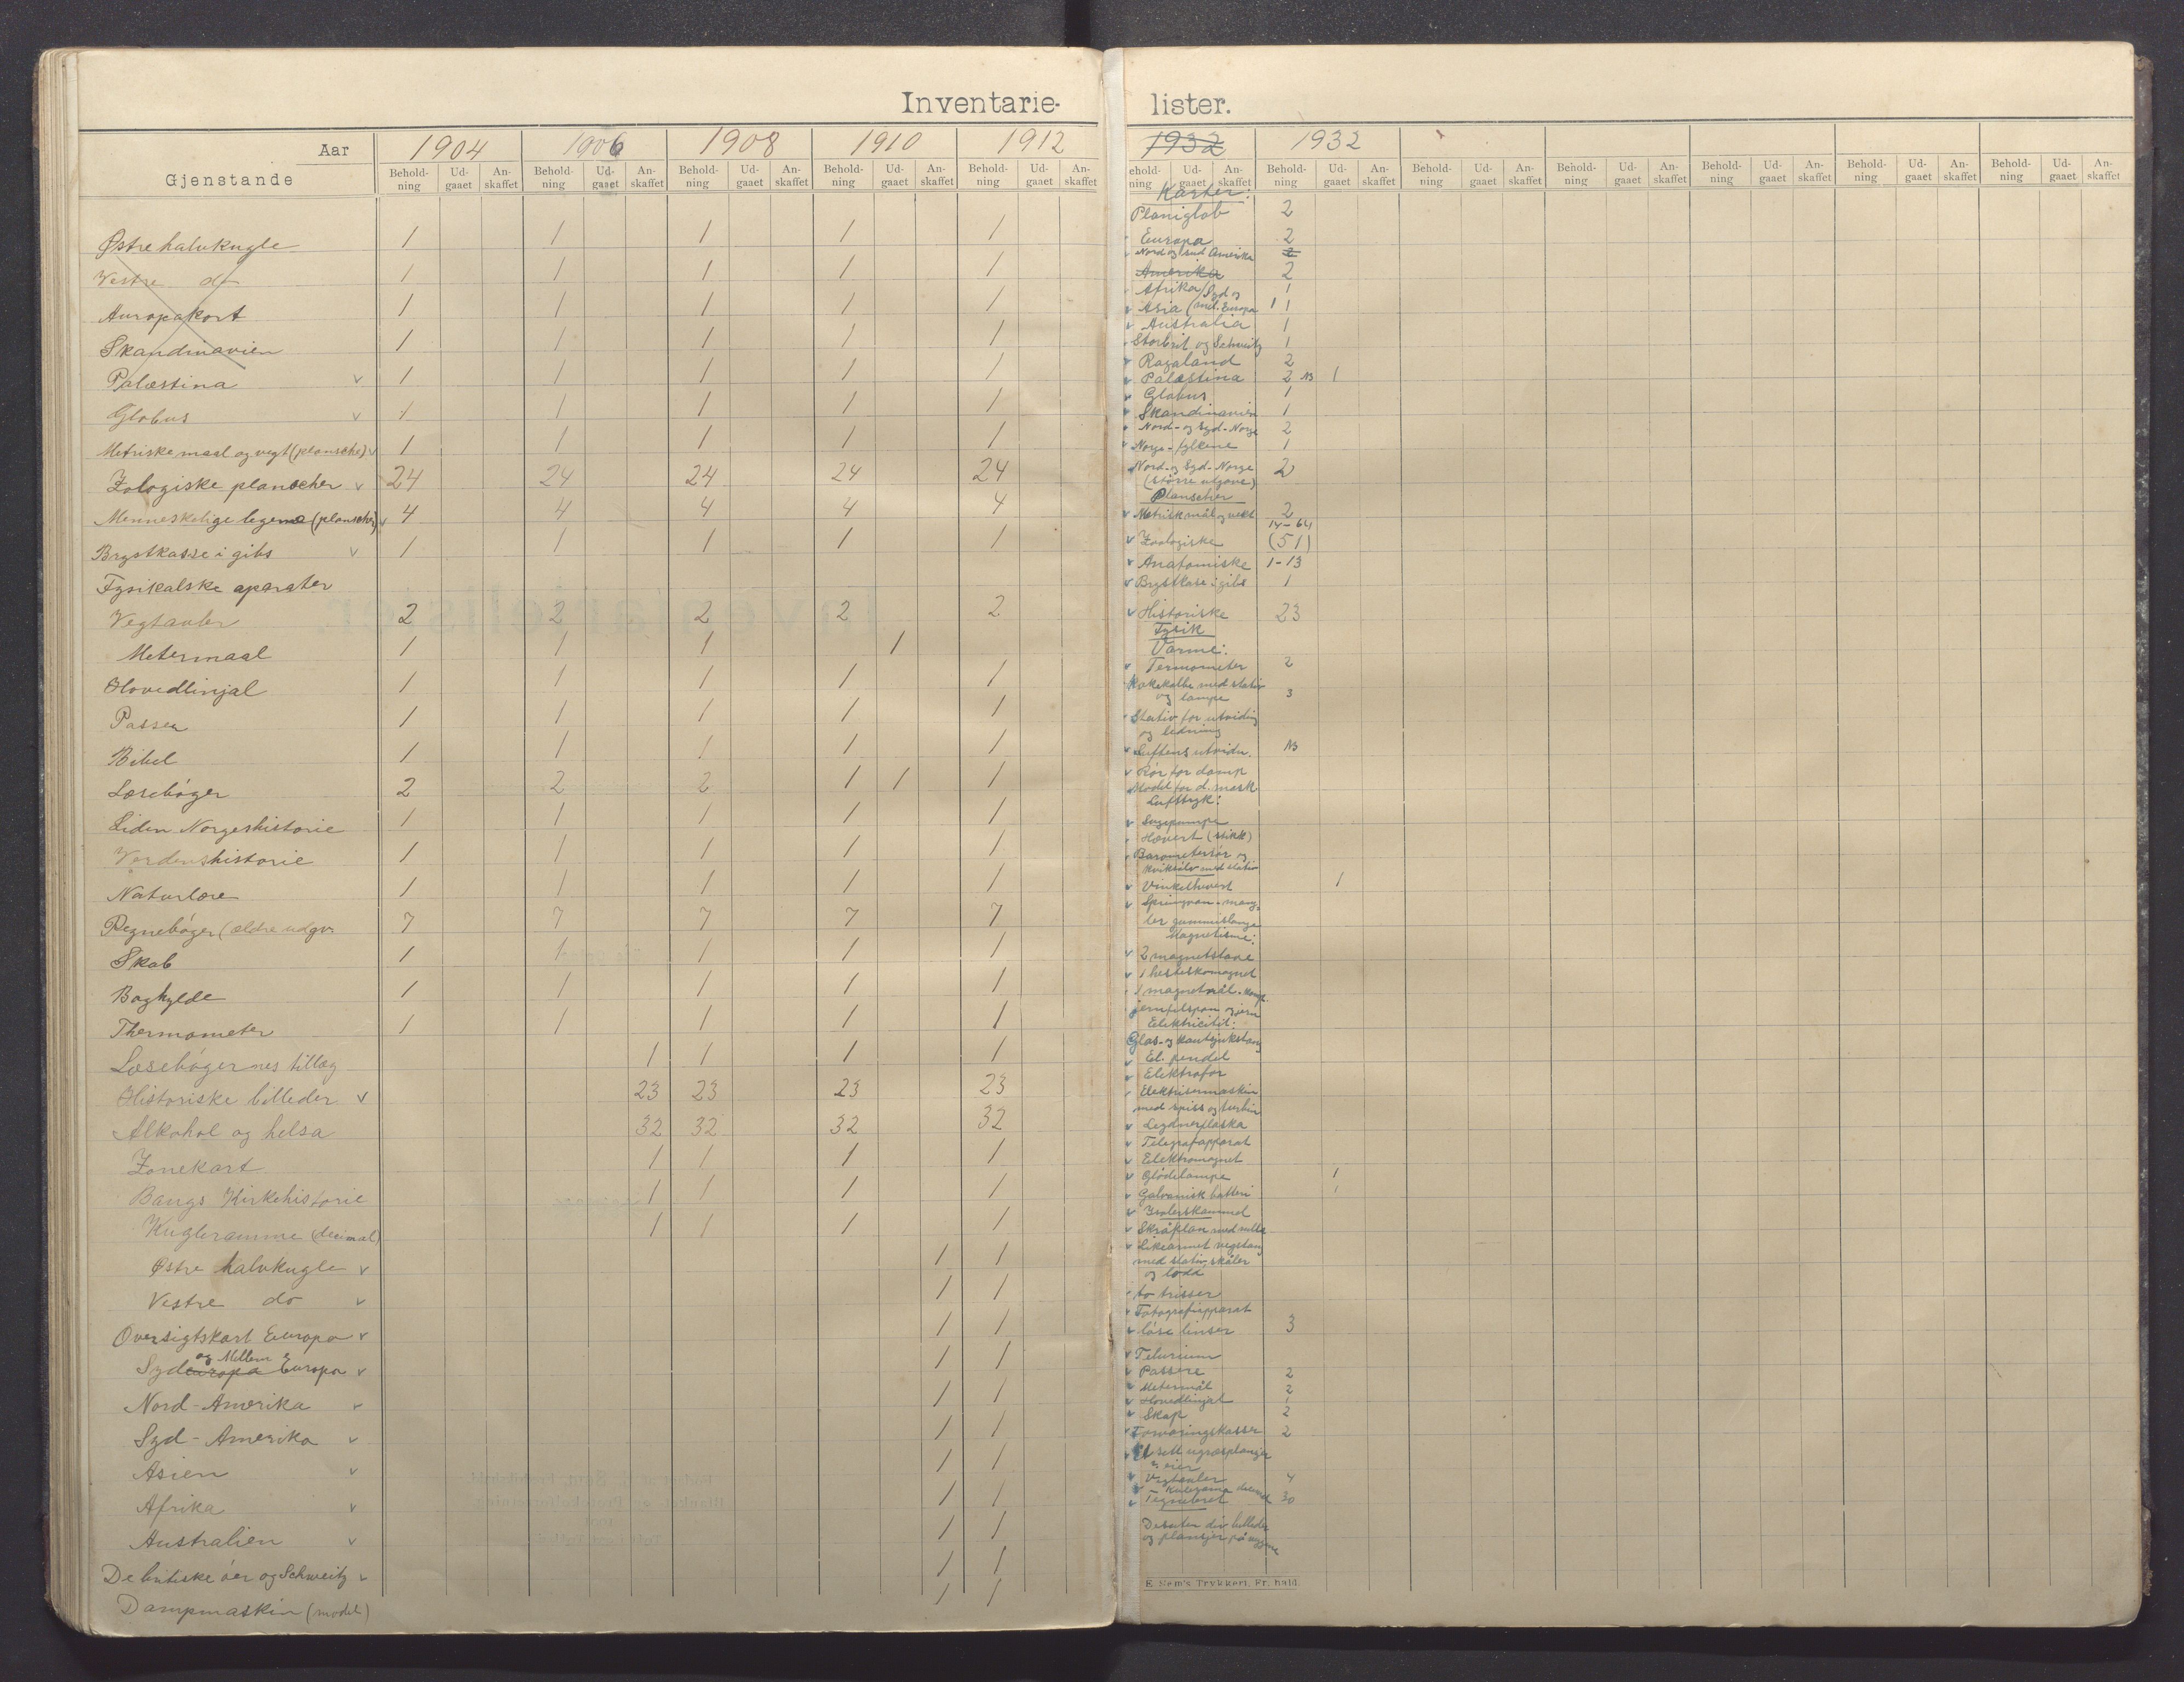 Inventarie-
Aar 1904 1906 1908 1910 1912
Gjenstande Behold-ning Ud-gaaet An-skaffet Behold-ning Ud-gaaet An-skaffet Behold-ning Ud-gaaet An-skaffet Behold-ning Ud-gaaet An-skaffet Behold-ning Ud-gaaet An-skaffet
Østre halvkugle 1 1 1 1 1
Vestre do 1 1 1 1 1
Auropakort 1 1 1 1 1
Skandinavien 1 1 1 1 1
Palæstina v 1 1 1 1 1
Globus v 1 1 1 1 1
Metriske maal og vegt (plansche) v 1 1 1 1 1
Zologiske planscher v 24 24 24 24 24
Menneskelige legeme (plansche) v 4 4 4 4 4
Brystkasse i gibs v 1 1 1 1 1
Fysikalske aparater
Vegtavler 2 2 2 2 2
Metermaal 1 1 1 1
Hovedlinjal 1 1 1 1 1
Passer 1 1 1 1 1
Bibel 1 1 1 1 1
Læsebøger 2 2 2 1 1 1
Liden Norgeshistorie 1 1 1 1 1
Verdenshistorie 1 1 1 1 1
Naturlære 1 1 1 1 1
Regnebøger (ældre udgv. 7 7 7 7 7
Skab 1 1 1 1 1
Boghylde 1 1 1 1 1
Thermometer 1 1 1 1 1
Læsebøgernes tillæg 1 1 1 1
Historiske billeder v 23 23 23 23
Alkohol og helsa 32 32 32 32
Zonekart 1 1 1 1
Bangs Kirkehistorie 1 1 1 1
Kugleramme (decimal) 1 1 1 1
Østre halvkugle v 1 1
Vestre do v 1 1
Oversigtskart Europa v 1 1
og Mellem
Sydeuropa Europa v 1 1
Nord-Amerika v 1 1
Syd-Amerika v 1 1
Asien v 1 1
Afrika v 1 1
Australien v 1 1
De britiske øer og Schweitz v 1 1
Dampmaskin (model) 1 1
lister.
1932 1932
Behold-ning Ud-gaaet An-skaffet Behold-ning Ud-gaaet An-skaffet Behold-ning Ud-gaaet An-skaffet Behold-ning Ud-gaaet An-skaffet Behold-ning Ud-gaaet An-skaffet Behold-ning Ud-gaaet An-skaffet
Karter:
Planiglob 2
Europa 2
Nord og Sud Amerika 2
Amerika 2
Afrika 1
Syd og
Asia (mel. Europa 1 1
Australia 1
Storbrit og Schweitz 1
Rogaland 2
Palæstina 2 1
Globus 1
Skandinavien 1
Nord- og Syd-Norge 2
Norge-fylkene 1
Nord- og Syd-Norge 2
(større utgave)
Planscher
Metrisk mål og vekt 2
14-64
Zoologiske (51)
Anatomiske 1-13
Brystkase i gibs 1
Historiske 23
Fysik
Varme:
Termometer 2
Kokekolbe med stativ
og lampe 3
Stativ for utviding
og ledning
Luftens utvidn.
Rør for damp
Model for d. mask.
Lufttryk:
Sugepumpe
Hævert (stikk)
Barometerrør og
kviksølv med stativ
Vinkelhevert 1
Springvan - mang-
ler gummislange
Magnetisme:
2 magnetstave
1 hesteskomagnet
1 magnetnål
jernfilspon og jern
Elektricitet:
Glas- og kautsjukstang
El. pendel
Elektrofor
Elektrisermaskin
med spiss og turbin
Leydnerflaska
Telegrafapparat
Elektromagnet
Glødelampe 1
Galvanisk batteri 1
Isolerskammel
Skråplan med rulle
Likearmet vegstang
med stativ, skåler
og lodd
to trisser
Fotografiapparat
løse linser 3
Telurium
Passere 2
Metermål 2
Hovedlinjal 1
Skap 2
Forvaringskasser 2
Et sett ugrasplansjer
Vegtavler 4
Kuleramme
Tegnebret 30
Desuten div. billeder
og plansjer på veggene
E Sem's Trykkeri, Fr. hald.